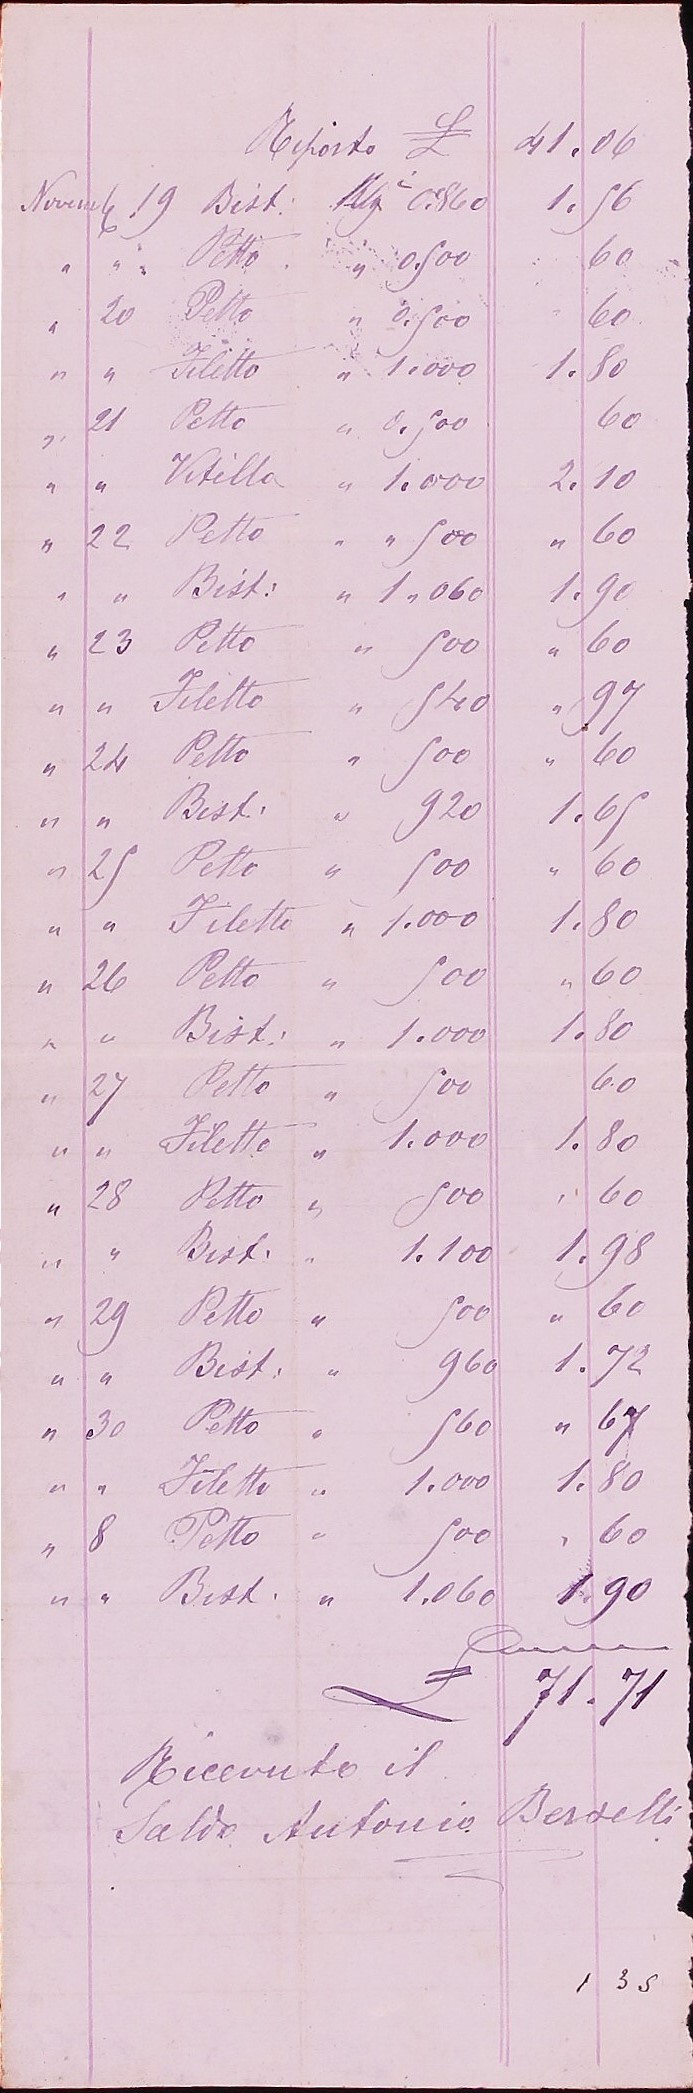 Riporto £ 41.06
Novemb. 19 Bist: Klg i 0.860 1.56
" " Petto " 0.500 60
" 20 Petto " 0.500 60
" " Filetto " 1.000 1.80
" 21 Petto " 0.500 60
" " Vitilla " 1.000 2.10
" 22 Petto " " 500 " 60
" " Bist: " 1.060 1.90
" 23 Petto " 500 " 60
" " Filetto " 540 " 97
" 24 Petto " 500 " 60
" " Bist: " 920 1.65
" 25 Petto " 500 " 60
" " Filetto " 1.000 1.80
" 26 Petto " 500 " 60
" " Bist: " 1.000 1.80
" 27 Petto " 500 60
" " Filetto " 1.000 1.80
" 28 Petto " 500 " 60
" " Bist. " 1.100 1.98
" 29 Petto " 500 " 60
" " Bist: " 960 1.72
" 30 Petto " 560 " 67
" " Filetto " 1.000 1.80
" 8 Petto " 500 " 60
" " Bist. " 1.060 1.90
£ 71.71
Ricevuto il
Saldo Antonio
1 3 5